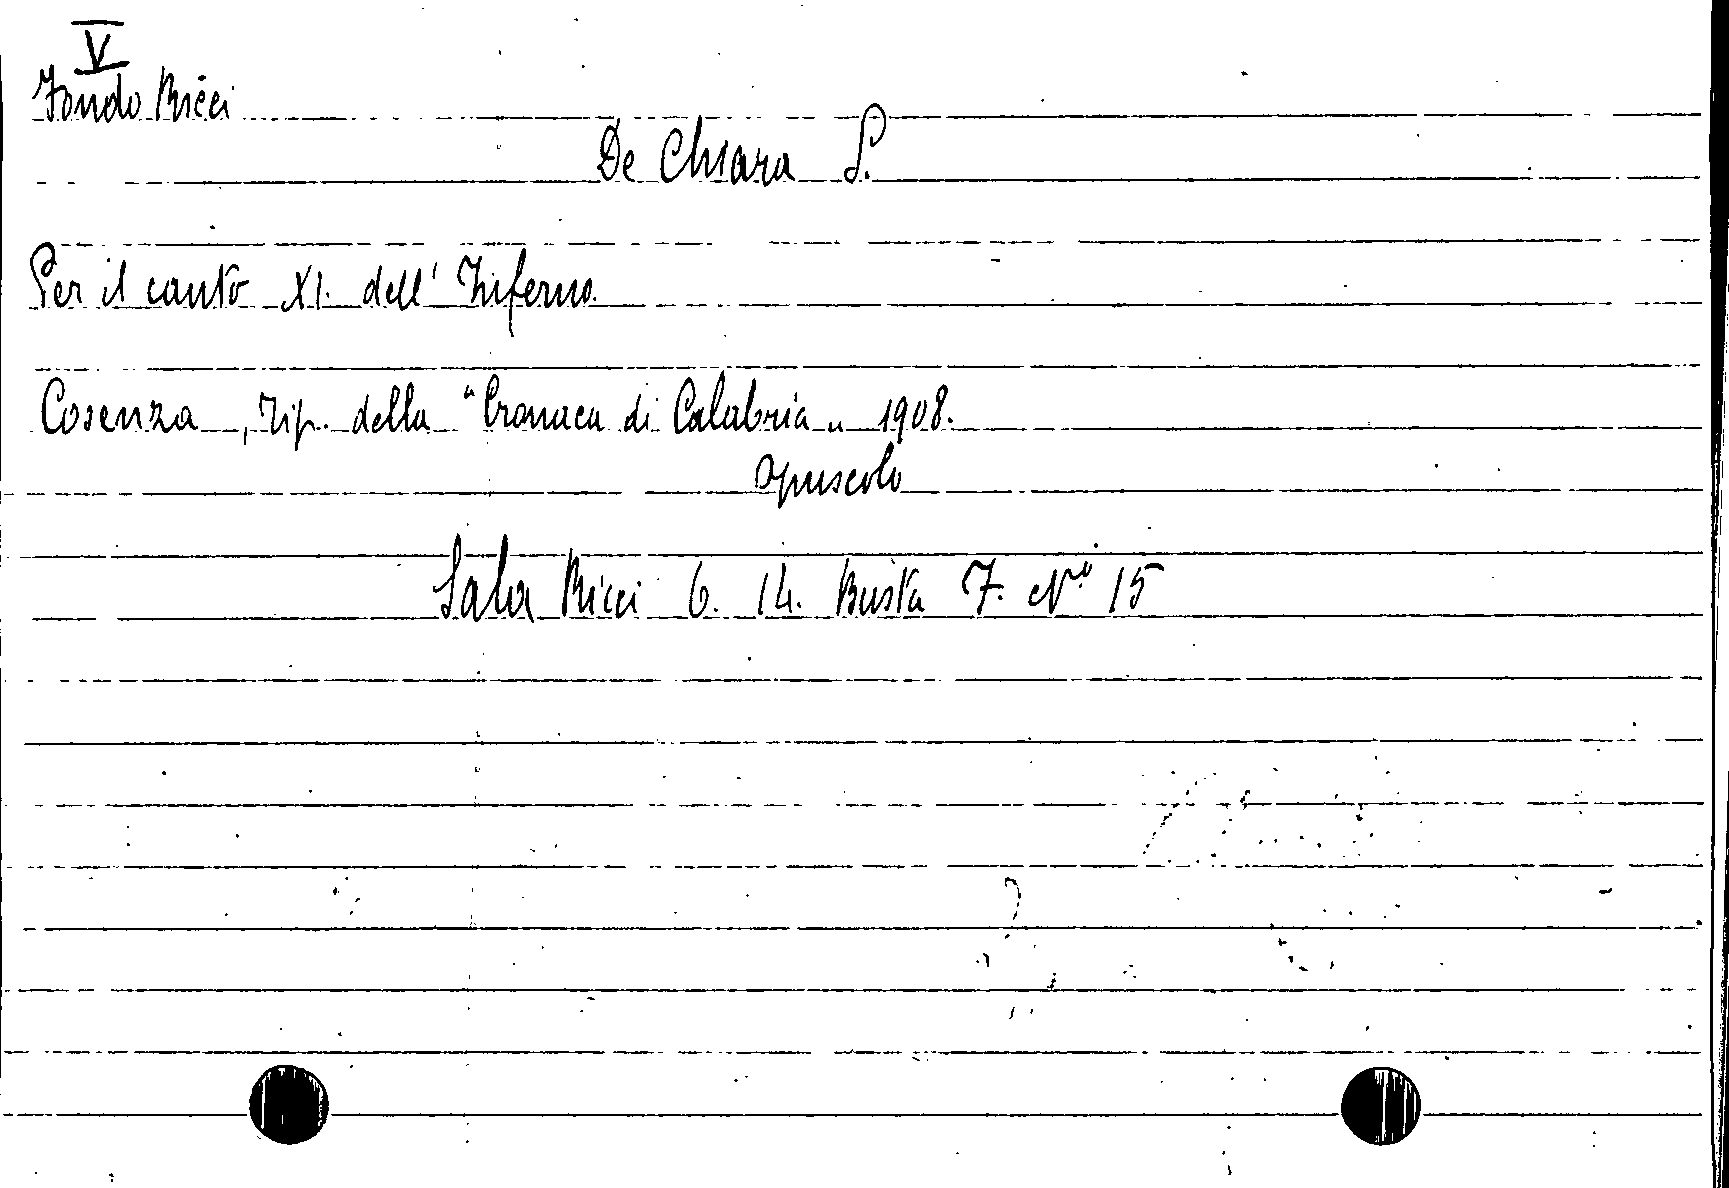 V
Fondo Ricci
De Chiara S.
Per il canto XI. dell' Inferno.
Cosenza, Tip. della "Cronaca di Calabria„ 1908.
opuscolo
Sala Ricci 6. 14. Busta 7. N.º 15